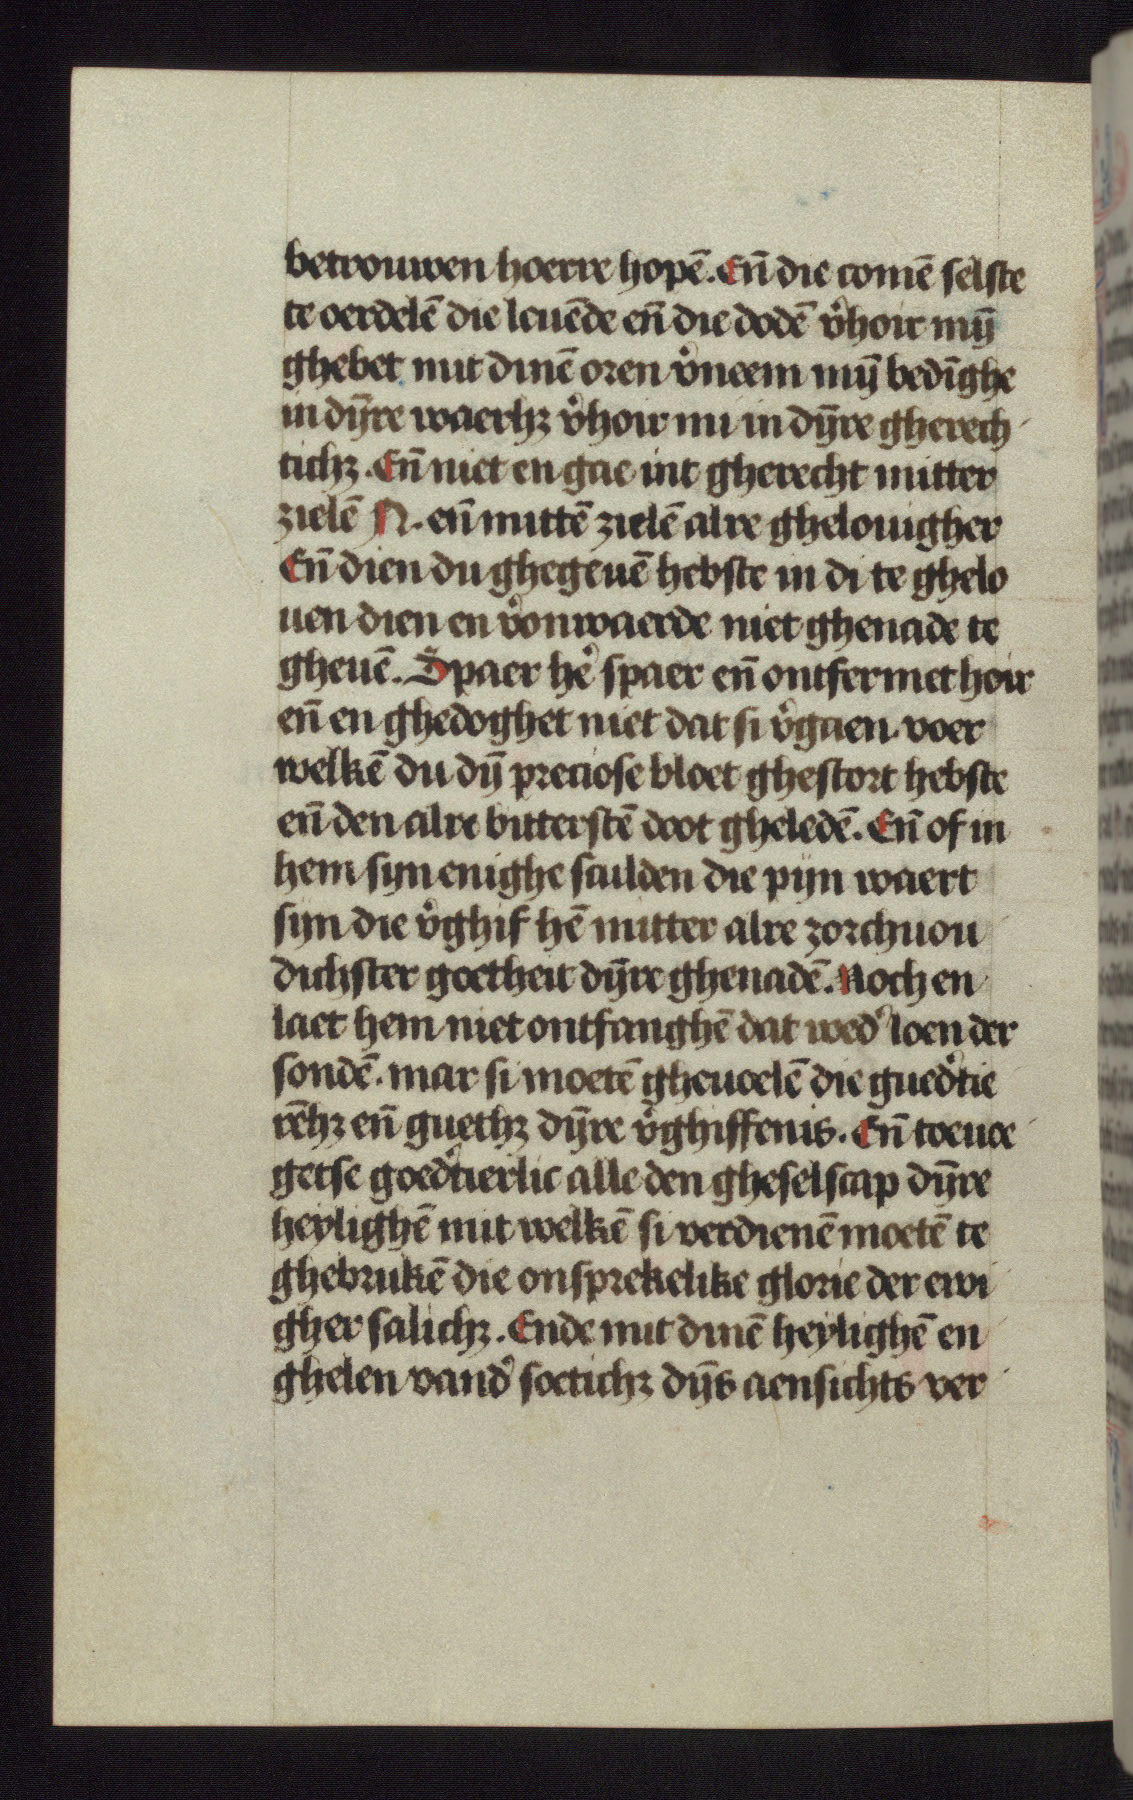 betrouwen hoerre hopē. Eñ die comē selste
te oerdelē die leuēde eñ die dodē v͛hoir mȳ
ghebet mit dinē oren v͛neem mȳ bedīghe
in dȳre waerhꝫ v͛hoir mi in dȳre gherech
tichꝫ. Eñ niet en gae int gherecht mitter
zielē N. eñ mittē zielē alre ghelouigher
Eñ dien du ghegeuē hebste in di te ghelo
uen dien en v͛onwaerde niet ghenade te
gheuē. Spaer he͛ spaer eñ ontfermet hoir
eñ en ghedoghet niet dat si v͛gaen. voer
welkē du dȳ preciose bloet ghestort hebste
eñ den alre bitterstē doot gheledē. Eñ of in
hem syn enighe sculden die pijn waert
sijn die v͛ghif hē mitter alre zorchuou
dichster goetheit dȳre ghenadē. Noch en
laet hem niet ontfanghē dat wed͛ loen der
sondē. mar si moetē gheuoelē die gued͛tie
rēhꝫ eñ guethꝫ dȳre v͛ghiffenis. Eñ toeuoe
getse goed͛tierlic alle den gheselscap dȳre
heylighē mit welkē si verdienē moetē te
ghebrukē die onsprekelike glorie der ewi
gher salichꝫ. Ende mit dinē heylighē en
ghelen vand͛ soetichꝫ dȳs aensichts ver